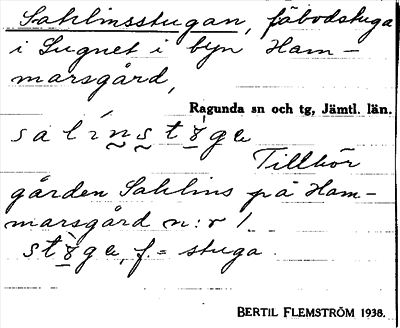 Sahlinsstugan, fäbodstuga
i Lugnet i byn Ham-
marsgård,
Ragunda sn och tg, Jämtl. län.
Tillhör
gården Sahlins på Ham-
marsgård n:r 1.
f. = stuga.
BERTIL FLEMSTRÖM 1938.